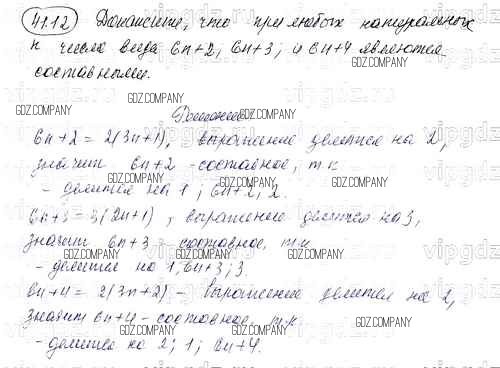 4.112 Докажите, что при любых натуральных
n числа вида 6n+2, 6n+3; и 6n+4 являются
составными.
GDZ.COMPANY GDZ.COMPANY
Решение
6n+2 = 2(3n+1), выражение делится на 2,
значит 6n+2 - составное, т.к
- делится на 1; 6n+2, 2.
6n+3 = 3(2n+1), выражение делится на 3,
значит 6n+3 - составное, т.к.
- делится на 1; 6n+3; 3.
6n+4 = 2(3n+2) - выражение делится на 2,
значит 6n+4 - составное, т.к.
- делится на 2; 1; 6n+4.